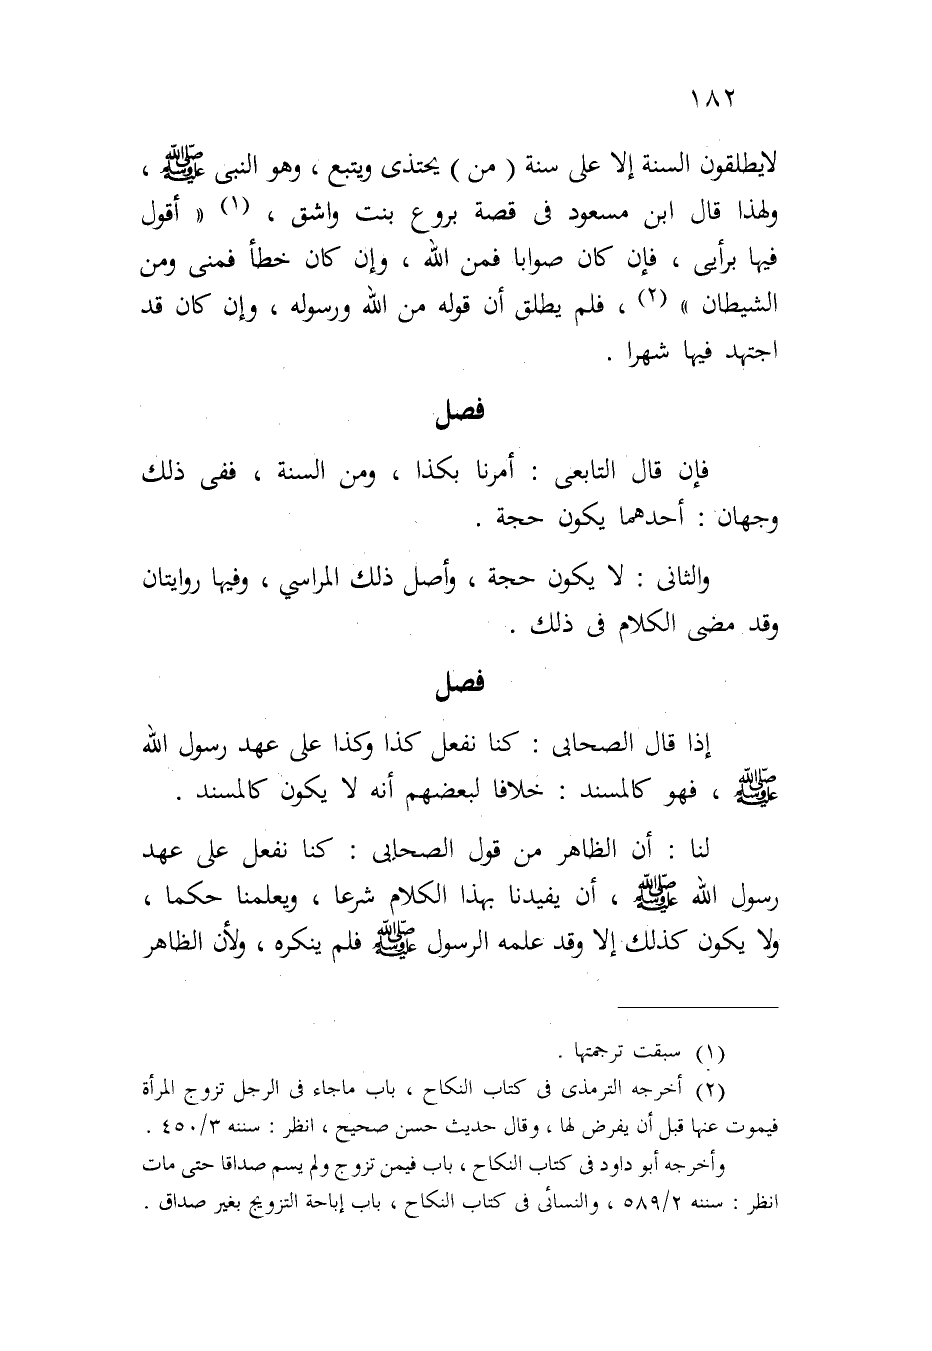 ١٨٢
لايطلقون السنة إلا على سنة ( من ) يحتذى ويتبع ، وهو النبى ﷺ ،
ولهذا قال ابن مسعود فى قصة بروع بنت واشق ، (١) « أقول
فيها برأيى ، فإن كان صوابا فمن الله ، وإن كان خطأ فمنى ومن
الشيطان » (٢) ، فلم يطلق أن قوله من الله ورسوله ، وإن كان قد
اجتهد فيها شهرا .
فصل
فإن قال التابعى : أمرنا بكذا ، ومن السنة ، ففى ذلك
وجهان : أحدهما يكون حجة .
والثانى : لا يكون حجة ، وأصل ذلك المراسي ، وفيها روايتان
وقد مضى الكلام فى ذلك .
فصل
إذا قال الصحابى : كنا نفعل كذا وكذا على عهد رسول الله
ﷺ ، فهو كالمسند : خلافا لبعضهم أنه لا يكون كالمسند .
لنا : أن الظاهر من قول الصحابى : كنا نفعل على عهد
رسول الله ﷺ ، أن يفيدنا بهذا الكلام شرعا ، ويعلمنا حكما ،
ولا يكون كذلك إلا وقد علمه الرسول ﷺ فلم ينكره ، ولأن الظاهر
(١) سبقت ترجمتها .
(٢) أخرجه الترمذى فى كتاب النكاح ، باب ماجاء فى الرجل تزوج المرأة
فيموت عنها قبل أن يفرض لها ، وقال حديث حسن صحيح ، انظر : سننه ٤٥٠/٣ .
وأخرجه أبو داود فى كتاب النكاح ، باب فيمن تزوج ولم يسم صداقا حتى مات
انظر : سننه ٥٨٩/٢ ، والنسائى فى كتاب النكاح ، باب إباحة التزويج بغير صداق .